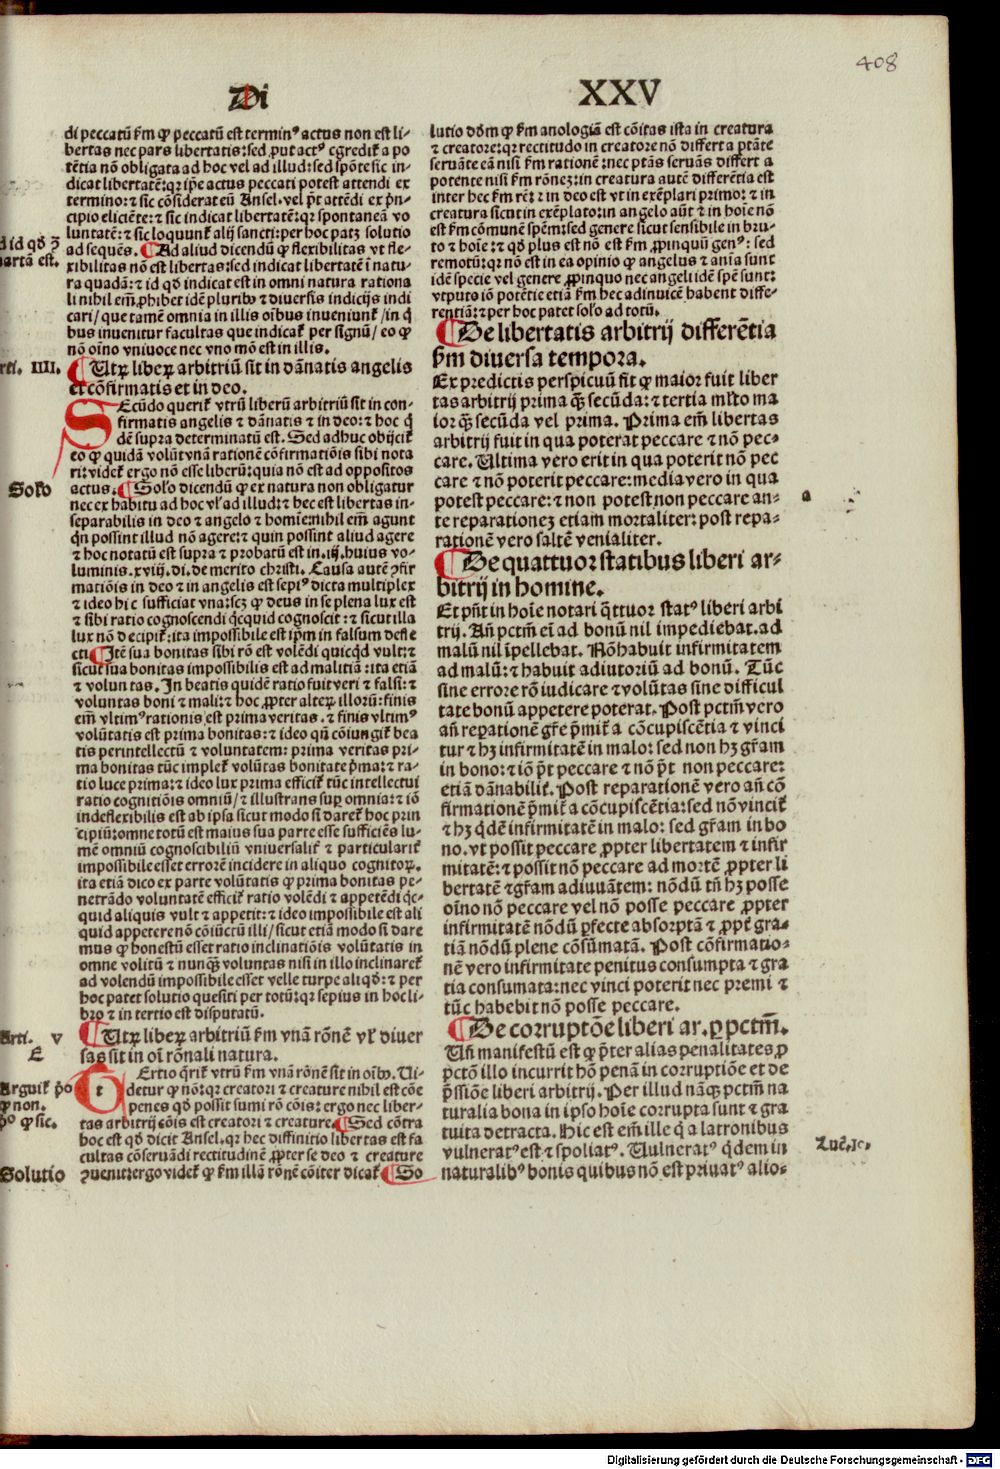 408
Di
XXV
di peccatū ẜm ꝙ peccatū est terminꝰ actus non est li-
bertas nec pars libertatis: sed ꝓut actꝰ egredit᷑ a po
tētia nō obligata ad hoc vel ad illud: sed spōte sic in-
dicat libertatē: qꝛ ip̄e actus peccati potest attendi ex
termino: ⁊ sic cōsiderat eū Ansel. vel pt̄ attēdi ex pn̄-
cipio eliciēte: ⁊ sic indicat libertatē: qꝛ spontaneā vo
luntatē: ⁊ sic loquunt᷑ alij sancti: per hoc patꝫ solutio
ad sequēs. ¶ Ad aliud dicendū ꝙ flexibilitas vt fle-
xibilitas nō est libertas: sed indicat libertatē ī natu-
ra quadā: ⁊ id qđ indicat est in omni natura rationa
li nihil em̄ ꝓhibet idē pluribꝰ ⁊ diuersis indicijs indi
cari/ que tamē omnia in illis oībus inueniunt᷑/ in q̄
bus inuenitur facultas que indicat᷑ per signū/ eo ꝙ
nō oīno vniuoce nec vno mō est in illis.
¶ Utꝝ liberꝝ arbitriū sit in dānatis angelis
et cōfirmatis et in deo.
Secūdo querit᷑ vtrū liberū arbitriū sit in con-
firmatis angelis ⁊ dānatis ⁊ in deo: ⁊ hoc q̄
dē supra determinatū est. Sed adhuc obijcit᷑
eo ꝙ quidā volūt vnā rationē cōfirmatiōis sibi nota
ri: videt᷑ ergo nō esse liberū: quia nō est ad oppositos
actus. ¶ Solo dicendū ꝙ ex natura non obligatur
nec ex habitu ad hoc vl̄ ad illud: ⁊ hec est libertas in-
separabilis in deo ⁊ angelo ⁊ homine: nihil em̄ agunt
qn̄ possint illud nō agere: ⁊ quin possint aliud agere
⁊ hoc notatū est supra ⁊ probatū est in .iij. huius vo-
luminis. xviij. di. de merito christi. Causa autē ꝯfir
matiōis in deo ⁊ in angelis est sepiꝰ dicta multiplex
⁊ ideo hic sufficiat vna: scꝫ ꝙ deus in se plena lux est
⁊ sibi ratio cognoscendi q̄cquid cognoscit: ⁊ sicut illa
lux nō decipit᷑: ita impossibile est ip̄m in falsum defle
cti. ¶ Itē sua bonitas sibi rō est volēdi quicq̄d vult: ⁊
sicut sua bonitas impossibilis est ad malitiā: ita etiā
⁊ voluntas. In beatis quidē ratio fuit veri ⁊ falsi: ⁊
voluntas boni ⁊ mali: ⁊ hoc ꝓpter alterꝝ illorū: finis
em̄ vltimꝰ rationis est prima veritas. ⁊ finis vltimꝰ
volūtatis est prima bonitas: ⁊ ideo qn̄ cōiungit᷑ bea
tis per intellectū ⁊ voluntatem: prima veritas pri-
ma bonitas tūc implet᷑ volūtas bonitate p̄ma: ⁊ ra-
tio luce prima: ⁊ ideo lux prima efficit᷑ tūc intellectui
ratio cognitiōis omniū/ ⁊ illustrans suꝑ omnia: ⁊ iō
indeflexibilis est ab ipsa sicut modo si daret᷑ hoc prin
cipiū: omne totū est maius sua parte esse sufficiēs lu-
mē omniū cognoscibiliū vniuersalit᷑ ⁊ particularit᷑
impossibile esset errorē incidere in aliquo cognitoꝝ.
ita etiā dico ex parte volūtatis ꝙ prima bonitas pe-
netrādo voluntatē efficit᷑ ratio volēdi ⁊ appetēdi q̄c-
quid aliquis vult ⁊ appetit: ⁊ ideo impossibile est ali
quid appetere nō cōiūctū illi/ sicut etiā modo si dare
mus ꝙ honestū esset ratio inclinatiōis volūtatis in
omne volitū ⁊ nunqꝫ voluntas nisi in illo inclinaret᷑
ad volendū impossibile esset velle turpe aliqđ: ⁊ per
hoc patet solutio quesiti per totū: qꝛ sepius in hoc li-
bro ⁊ in tertio est disputatū.
¶ Utꝝ liberꝝ arbitriū ẜm vnā rōnē vl̄ diuer
sas sit in oī rōnali natura.
Tertio q̄rit᷑ vtrū ẜm vnā rōnē sit in oībꝰ. Ui-
detur ꝙ nō: qꝛ creatori ⁊ creature nihil est cōe
penes qđ possit sumi rō cōis: ergo nec liber-
tas arbitrij cōis est creatori ⁊ creature. ¶ Sed cōtra
hoc est qđ dicit Ansel. qꝛ hec diffinitio libertas est fa
cultas cōseruādi rectitudinē ꝓpter se deo ⁊ creature
ꝯuenit: ergo videt᷑ ꝙ ẜm illā rōnē cōiter dicat᷑. ¶ So
lutio dōm ꝙ ẜm anologiā est cōitas ista in creatura
⁊ creatore: qꝛ rectitudo in creatore nō differt a ptāte
seruāte eā nisi ẜm rationē: nec ptās seruās differt a
potente nisi ẜm rōneꝫ: in creatura autē differētia est
inter hec ẜm rē: ⁊ in deo est vt in exēplari primo: ⁊ in
creatura sicut in exēplato: in angelo aūt ⁊ in hoīe nō
est ẜm comunē spēm: sed genere sicut sensibile in bru-
to ⁊ hoīe: ⁊ qđ plus est nō est ẜm ꝓpinquū genꝰ: sed
remotū: qꝛ nō est in ea opinio ꝙ angelus ⁊ anīa sunt
idē specie vel genere ꝓpinquo nec angeli idē spē sunt:
vt puto iō potētie etiā ẜm hec adinuicē habent diffe-
rentiā: ⁊ per hoc patet solo ad totū.
¶ De libertatis arbitrij differētia
ẜm diuersa tempora.
Ex predictis perspicuū fit ꝙ maior fuit liber
tas arbitrij prima qꝫ secūda: ⁊ tertia ml̄to ma
ior qꝫ secūda vel prima. Prima em̄ libertas
arbitrij fuit in qua poterat peccare ⁊ nō pec-
care. Ultima vero erit in qua poterit nō pec
care ⁊ nō poterit peccare: media vero in qua
potest peccare: ⁊ non potest non peccare an-
te reparationeꝫ etiam mortaliter: post repa-
rationē vero saltē venialiter.
¶ De quattuor statibus liberi ar-
bitrij in homine.
Et pn̄t in hoīe notari q̄ttuor statꝰ liberi arbi
trij. Añ pctm̄ ei̅ ad bonū nil impediebat. ad
malū nil īpellebat. Nō habuit infirmitatem
ad malū: ⁊ habuit adiutoriū ad bonū. Tūc
sine errore rō iudicare ⁊ volūtas sine difficul
tate bonū appetere poterat. Post pctm̄ vero
añ reparationē gr̄e p̄mit᷑ a cōcupiscētia ⁊ vinci
tur ⁊ hꝫ infirmitatē in malo: sed non hꝫ gr̄am
in bono: ⁊ iō pt̄ peccare ⁊ nō pt̄ non peccare:
etiā dānabilit᷑. Post reparationē vero añ cō
firmationē p̄mit᷑ a cōcupiscētia: sed nō vincit᷑
⁊ hꝫ q̄dē infirmitatē in malo: sed gr̄am in bo
no. vt possit peccare ꝓpter libertatem ⁊ infir
mitatē: ⁊ possit nō peccare ad mortē ꝓpter li
bertatē ⁊ gr̄am adiuuātem: nōdū tn̄ hꝫ posse
oīno nō peccare vel nō posse peccare ꝓpter
infirmitatē nōdū ꝑfecte absorptā ⁊ ꝓpt̄ gra-
tiā nōdū plene cōsūmatā. Post cōfirmatio-
nē vero infirmitate penitus consumpta ⁊ gra
tia consumata: nec vinci poterit nec premi ⁊
tūc habebit nō posse peccare.
¶ De corruptōe liberi ar. ꝑ pctm̄.
Uñ manifestū est ꝙ p̄ter alias penalitates ꝓ
pctō illo incurrit hō penā in corruptiōe et de
p̄ssiōe liberi arbitrij. Per illud nāqꝫ pctm̄ na
turalia bona in ipso hoīe corrupta sunt ⁊ gra
tuita detracta. Hic est em̄ ille q̄ a latronibus
vulneratꝰ est ⁊ spoliatꝰ. Uulneratꝰ q̄dem in
naturalibꝰ bonis quibus nō est priuatꝰ alio-
d id qđ ꝫ
uartā est.
rti. IIII.
Solo
Arti. v
E
Arguit᷑ p̄o
ꝙ non.
p̄o ꝙ sic.
Solutio
a
Luč. jc.
Digitalisierung gefördert durch die Deutsche Forschungsgemeinschaft - DFG